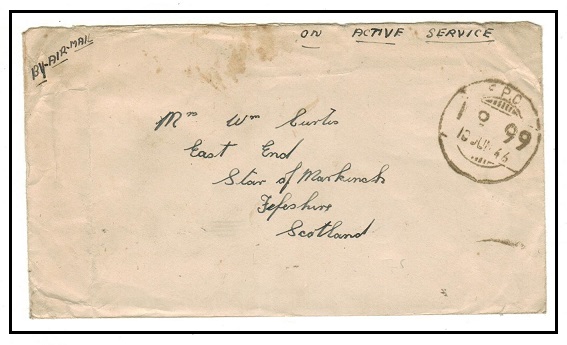 BY-AIR-MAIL
ON ACTIVE SERVICE
Mrs Wm Curtis
East End
Star of Markinch
Fifeshire
Scotland
F.P.O
99